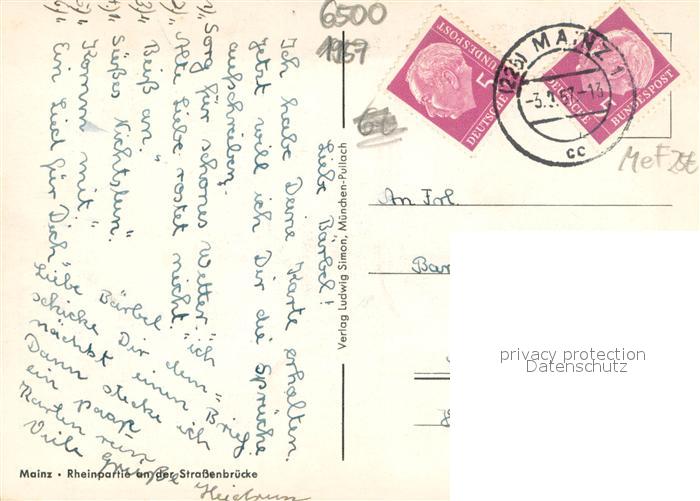 Liebe Bärbel!
Ich habe Deine Karte erhalten.
Jetzt will ich Dir die Sprüche
aufschreiben.
1, „Sorg für schönes Wetter."
2, „Alte Liebe rostet nicht."
3, „Beiß an"
4, „Süßes Nichtstun"
5, „Komm mit"
6, „Ein Lied für Dich"
Liebe Bärbel ich
schicke Dir dem-
nächst einen Brief.
Dann stecke ich
ein paar
Karten rein
Viele
Grüße
Heidrun
Mainz · Rheinpartie an der Straßenbrücke
Verlag Ludwig Simon, München-Pullach
6500
1957
DEUTSCHE BUNDESPOST
5
DEUTSCHE BUNDESPOST
(22b) MAINZ 1
cc
MeF 25€
An Frl.
privacy protection
Datenschutz